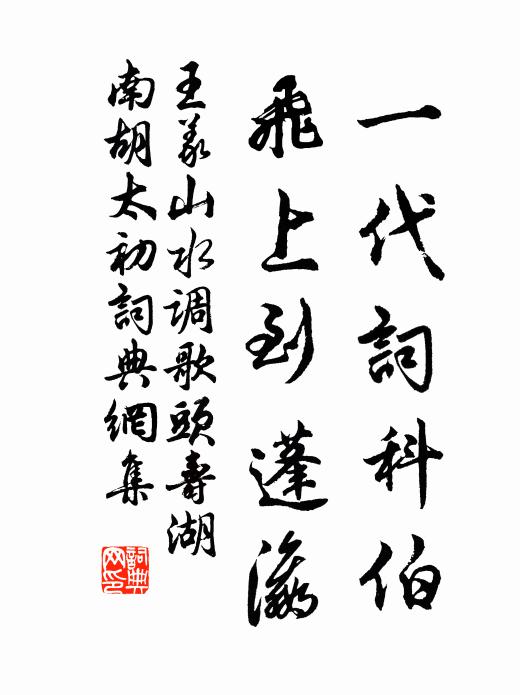 一代詞科伯
飛上到蓬瀛
王義山水調歌頭壽湖
南胡太初詞典網集
詞典網印